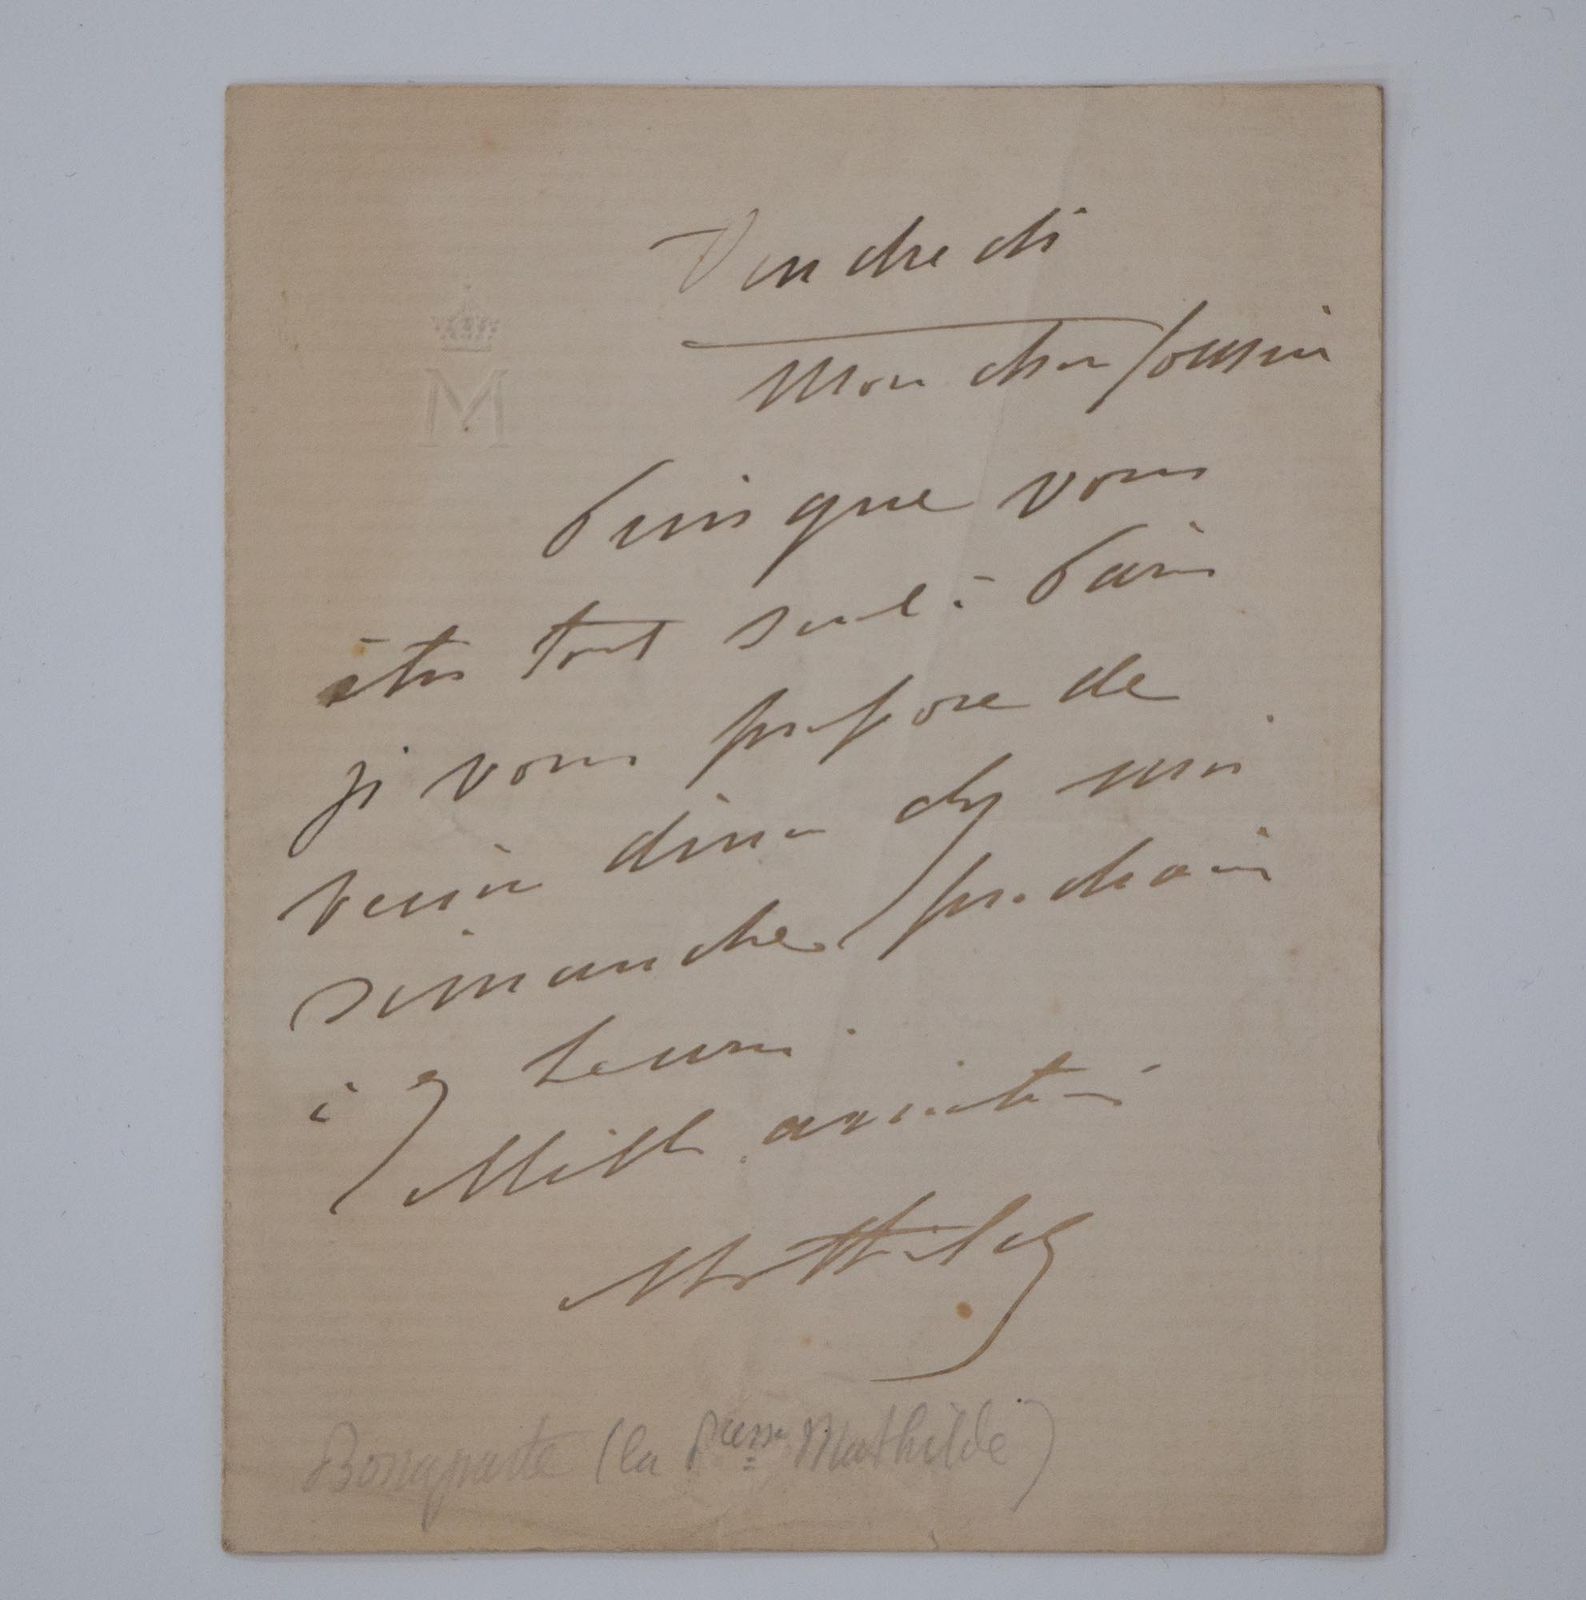 Vendredi
M
Mon cher Cousin
Puisque vous
êtes tout seul à Paris
je vous propose de
venir diner chez moi
dimanche prochain
à 7 heures.
Mille amitiés
Mathilde
Bonaparte (la Pcesse Mathilde)